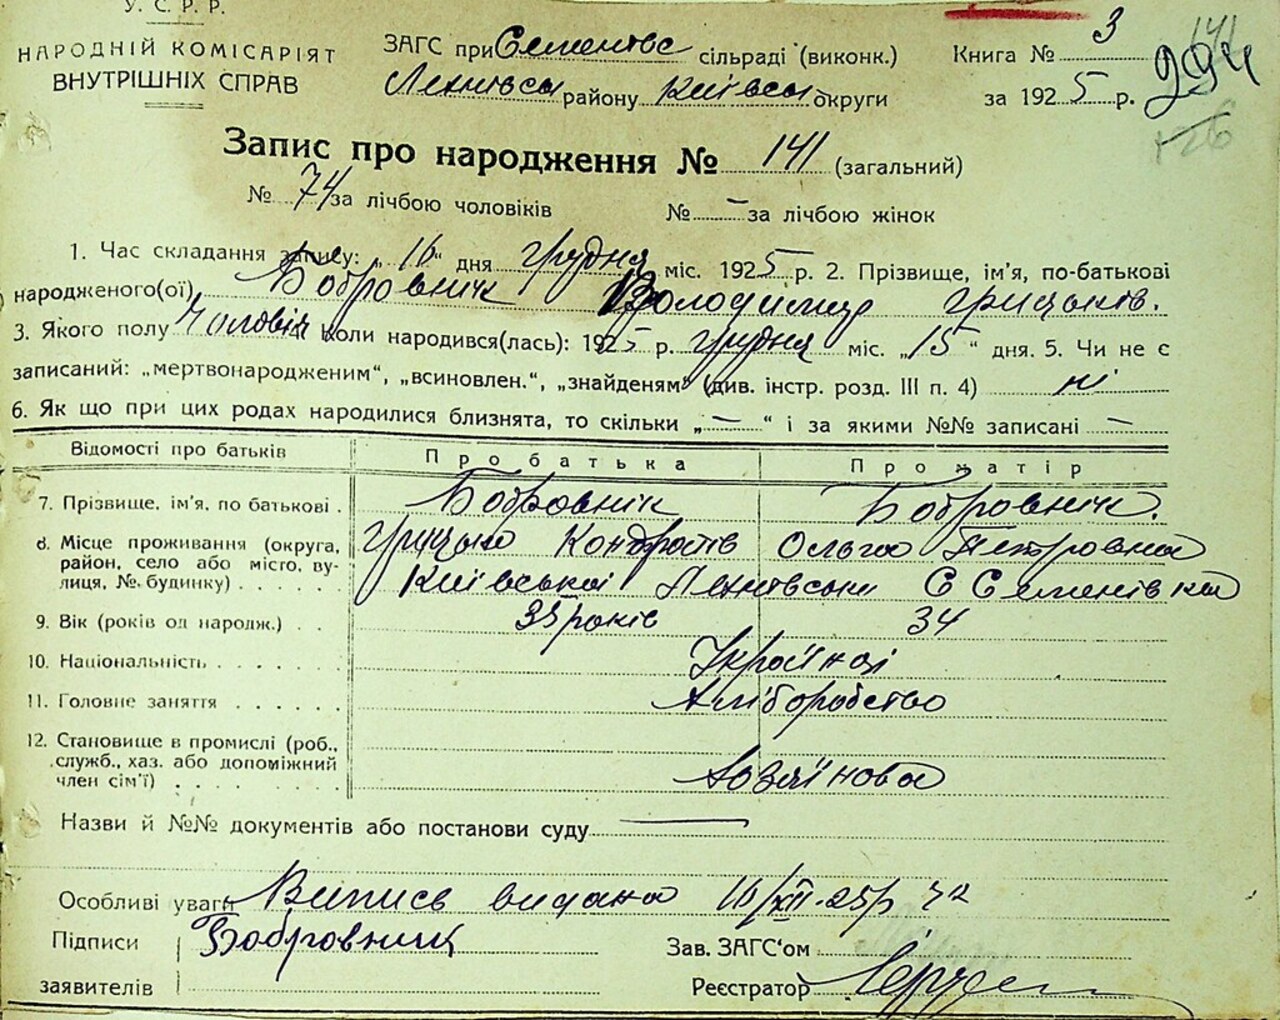 У.С.Р.Р.
НАРОДНІЙ КОМІСАРІЯТ
ВНУТРІШНІХ СПРАВ
ЗАГС при Семенівс сільраді (виконк.)
района округи
Книга № 3
за 1925 р.
294
141
126
Запис про народження № 141 (загальний)
№ 74 за лічбою чоловіків № – за лічбою жінок
1. Час складання запису: „16“ дня грудня міс. 1925 р. 2. Прізвище, ім’я, по-батькові
народженого(ої) Бобровнік Володимир Грицьків.
3. Якого полу чоловіч Коли народився(лась): 1925 р. грудня міс. „15“ дня. 5. Чи не є
записаний: „мертвонародженим“, „всиновлен.“, „знайденям“ (див. інстр. розд. III п. 4) ні
6. Як що при цих родах народилися близнята, то скільки „—“ і за якими №№ записані —
Відомості про батьків Про батька Про матір
7. Прізвище, ім’я, по батькові . Бобровнік Бобровнік.
8. Місце проживання (округа, Грицько Кондратів Ольга Петровна
район, село або місто, ву-
лиця, №. будинку) . . . . . Київської С Семенівка
9. Вік (років од народж.) . . 35 років 34
10. Національність . . . . . . Українці
11. Головне заняття . . . . . . Хліборобство
12. Становище в промислі (роб.,
служб., хаз. або допоміжний
член сім’ї) . . . . . . . Хозяїнова
Назви й №№ документів або постанови суду —
Особливі уваги Випись видана 16/XII-25р
Підписи Бобровник Зав. ЗАГС‘ом
заявителів Реєстратор